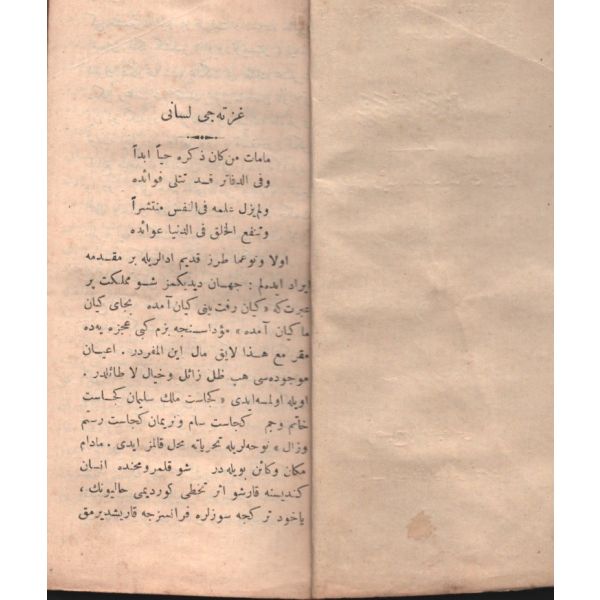 غزته جی لسانی
مامات من كان ذكره حياً ابداً
وفی الدفاتر قد تتلى فوائده
ولم یزل علمه فی النفس منتشراً
وتنفع الخلق فی الدنیا عوائده
اولا ونوعما طرز قدیم ادالریله بر مقدمه
ایراد ایده‌لم : جهان دیدیكمز شو مملكت پر
عبرت كه « كیان رفت یی كیان آمده بجای كیان
ما كیان آمده » مؤداسنجه بزم كبی عجزه یه‌ده
مقر مع هذا لایق مال این المفردر . اعیان
موجوده‌سی هب ظل زائل وخیال لا طائلدر .
اویله اولمسه‌ایدی « كجاست ملك سلیمان كجاست
خاتم وجم كجاست سام ونریمان كجاست رستم
وزال » نوحه‌لریله تحریاته محل قالمز ایدی . مادام
مكان وكائن بویله‌در شو قلمرو محنده انسان
كندیسنه قارشو اثر تخطی كوردیمی حالیونك ،
یاخود تركجه سوزلره فرانسزجه قاریشدیرمق